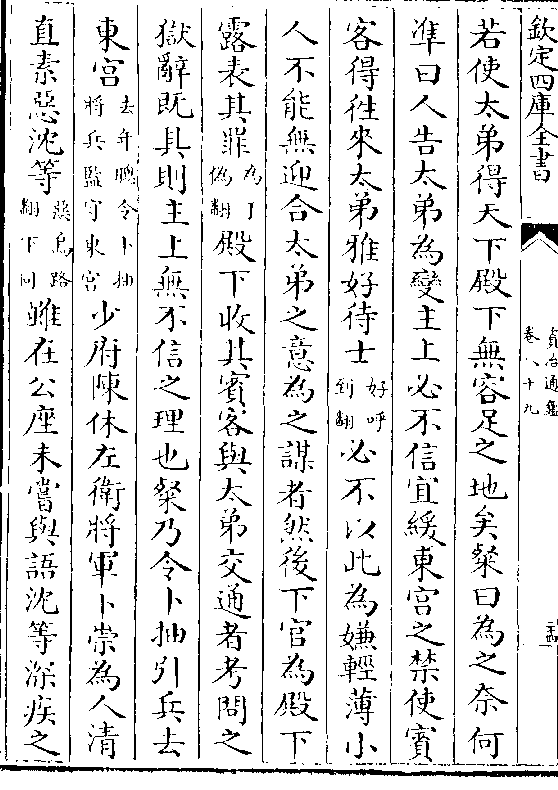 欽定四庫全書
資治通鑑
卷八十九
若使太弟得天下殿下無容足之地矣粲曰為之奈何
凖曰人告太弟為變主上必不信宜緩東宮之禁使賓
客得徃來太弟雅好待士好呼到翻必不以此為嫌輕薄小
人不能無迎合太弟之意為之謀者然後下官為殿下
露表其罪為于偽翻殿下收其賓客與太弟交通者考問之
獄辭既具則主上無不信之理也粲乃令卜抽引兵去
東宮去年聰令卜抽將兵監守東宮少府陳休左衛將軍卜崇為人清
直素惡沈等惡烏路翻下同雖在公座未嘗與語沈等深疾之